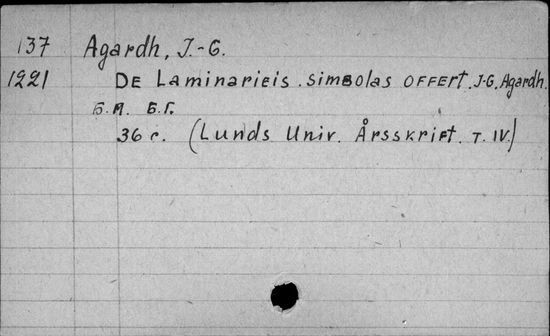 137 Agardh, J.-G.
1221 De Laminarieis simbolas offert. J-G. Agardh.
Б.м. Б.г.
36 с. (Lunds Univ. Årsskrift. T. IV.)